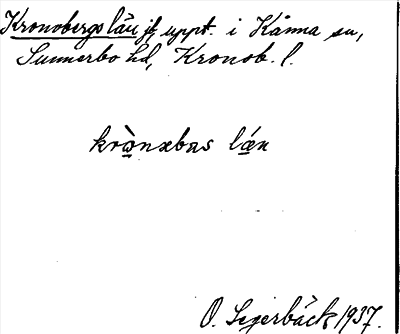 Kronobergs län jfr uppt. i Kånna sn,
Sunnerbo hd, Kronob. l.
län
O. Segerbäck 1937.